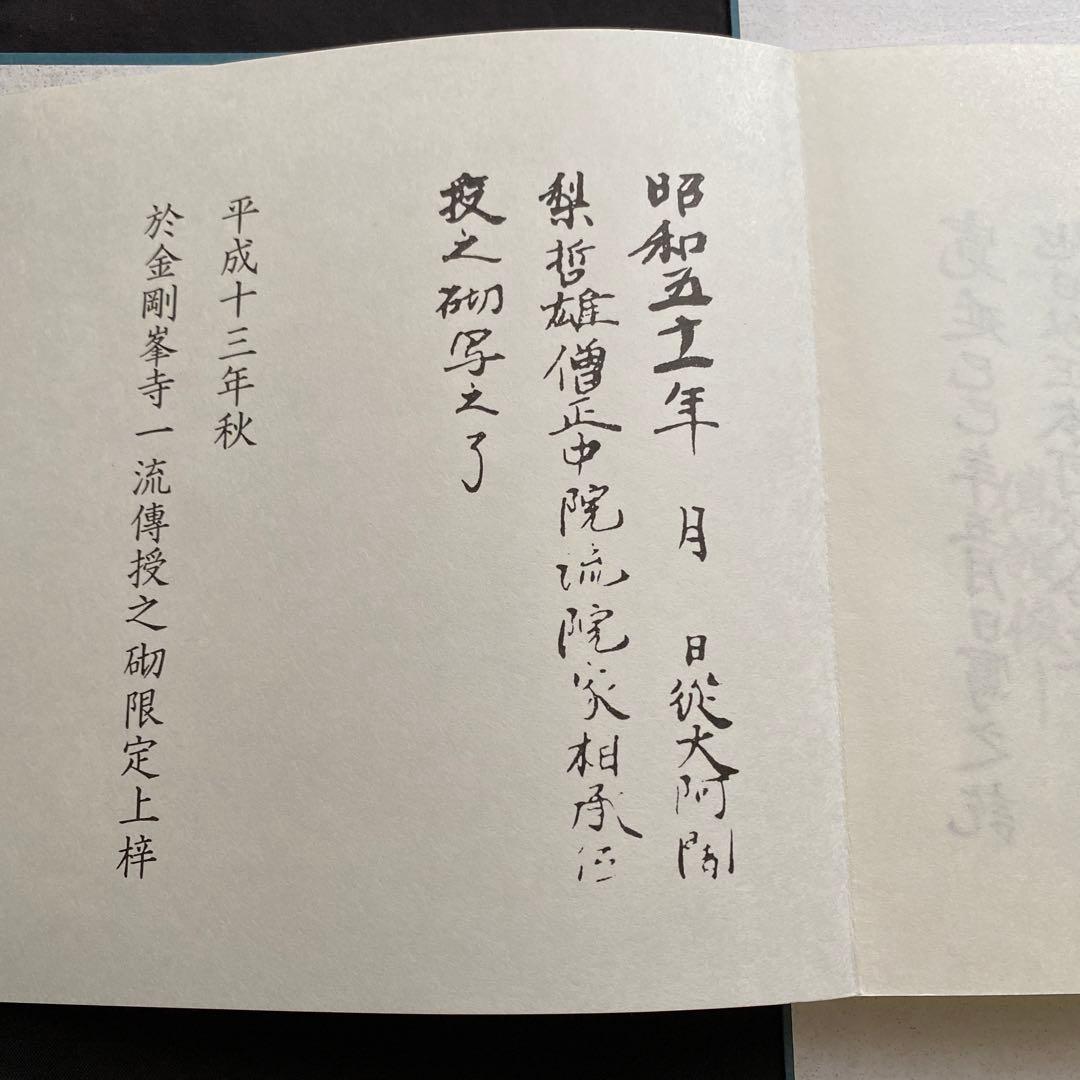 昭和五十一年 月 日從大阿闍
梨哲雄僧正中院流院家相承伝
授之砌写之了
平成十三年秋
於金剛峯寺一流傳授之砌限定上梓